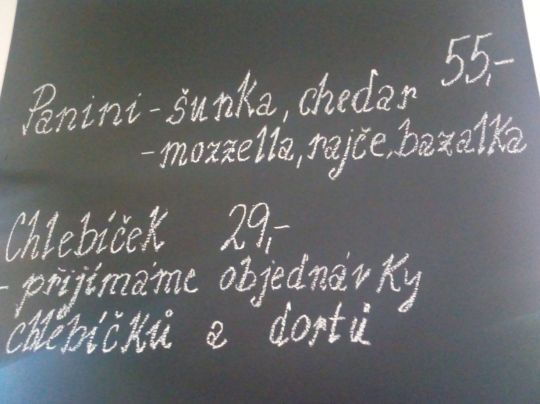 55,-
Panini - šunka, chedar
- mozzella, rajče, bazalka
Chlebíček 29,-
- přijímáme objednávky
chlebíčků a dortů